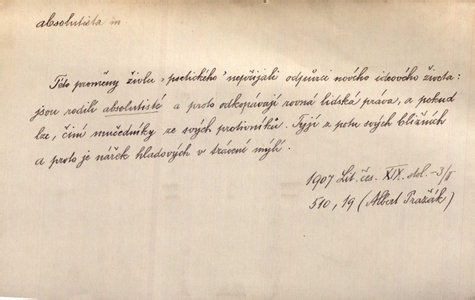 absolutista m.
Této proměny živlu „poetického" nepřijali odpůrci nového ideového života:
jsou rodilí absolutisté a proto odkopávají rovná lidská práva, a pokud
lze, činí mučedníky ze svých protivníků. Tyjí z potu svých bližních
a proto je nářek hladových v trávení mýlí.
1907 Lit. čes. XIX. stol. -3/I
510, 19 (Albert Pražák)